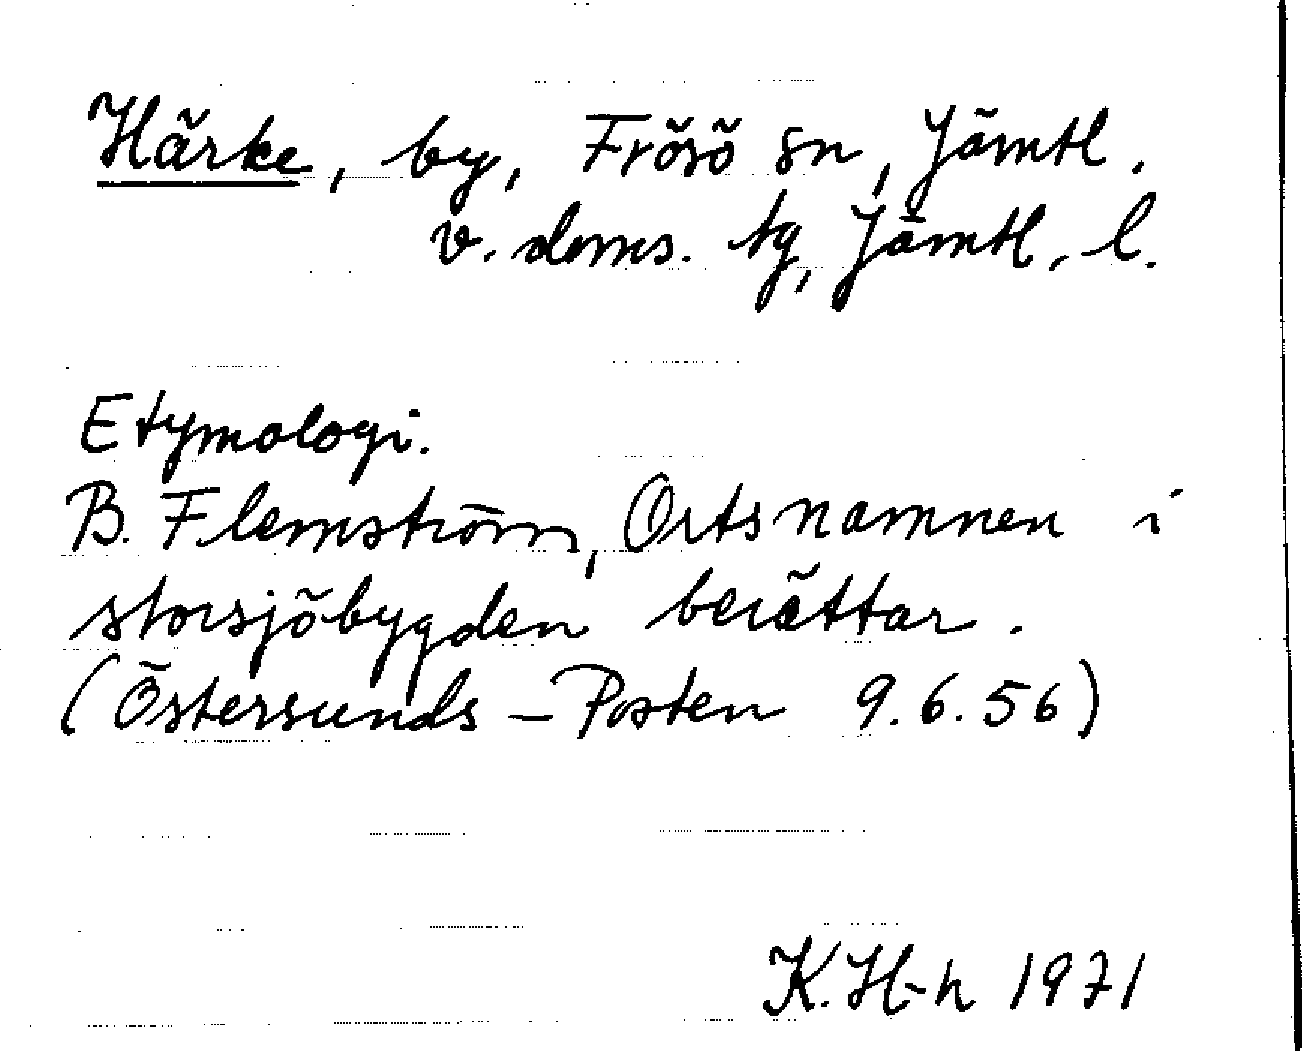 Härke, by, Frösö sn, Jämtl.
v. doms. tg, Jämtl. l.
Etymologi.
B. Flemström, Ortsnamnen i
storsjöbygden berättar.
(Östersunds-Posten 9.6.56)
K. H-h 1971